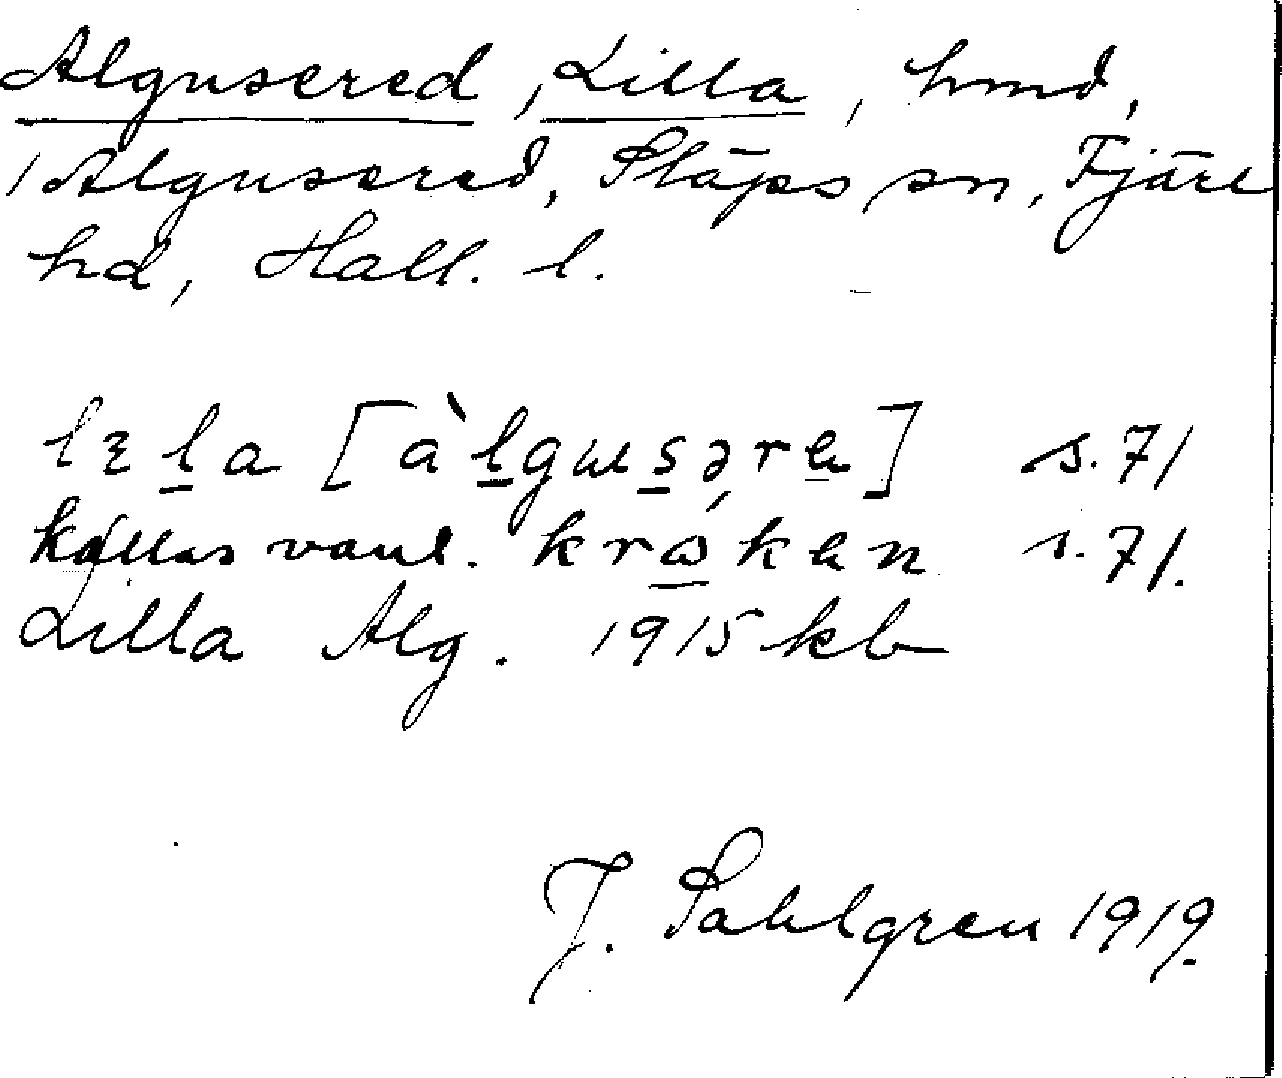 Algusered, Lilla, hmd,
1 Algusered, Släps sn, Fjäre
hd, Hall. l.
lɛla [àlgusəra] s. 71
kallas vanl. kròken s. 71.
Lilla Alg. 1915 kb
J. Sahlgren 1919.